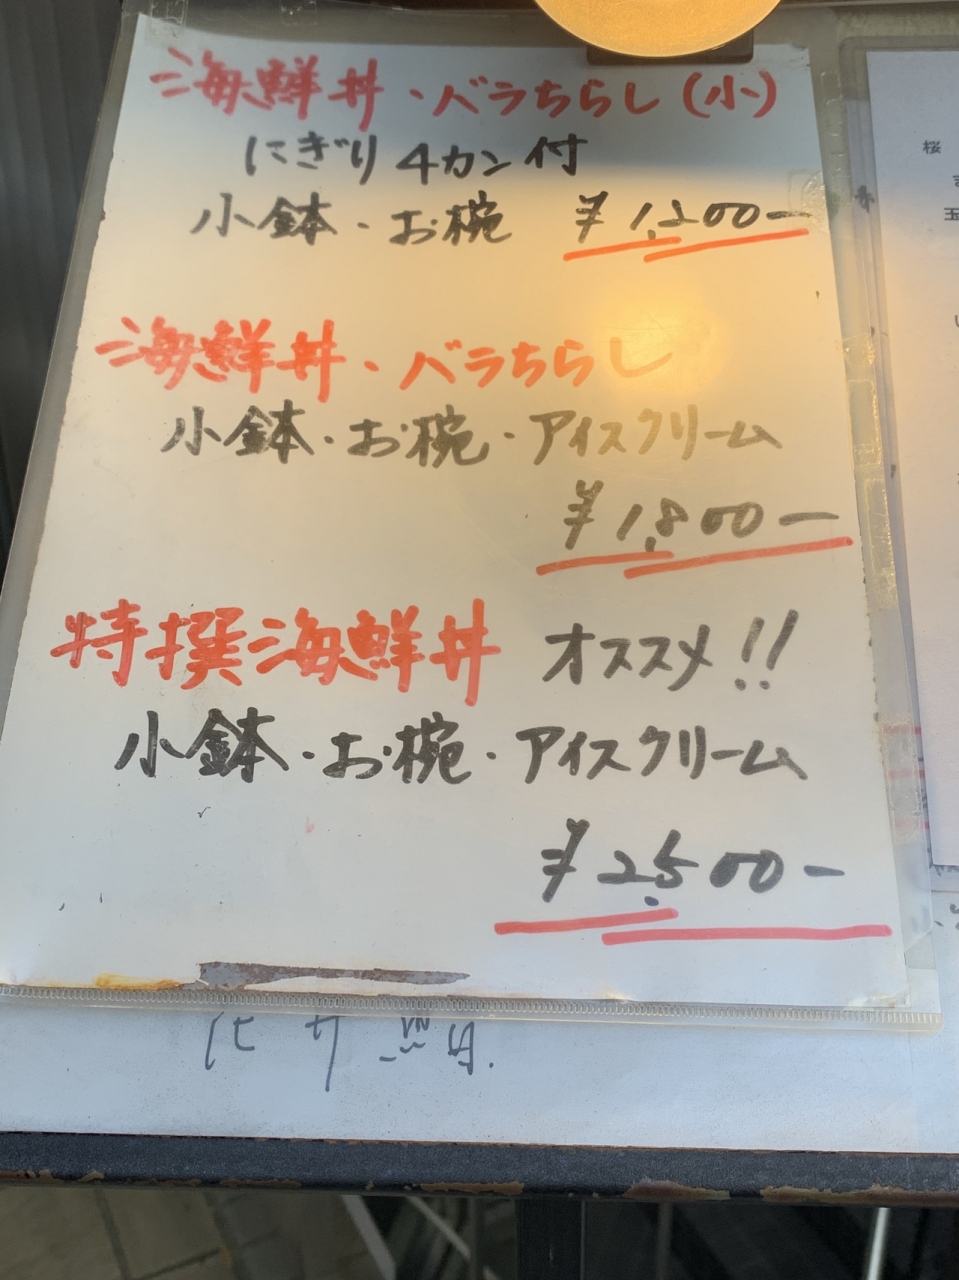 海鮮丼・バラちらし(小)
にぎり4カン付
小鉢・お椀 ¥1,200-
海鮮丼・バラちらし
小鉢・お椀・アイスクリーム
¥1,800-
特撰海鮮丼 オススメ!!
小鉢・お椀・アイスクリーム
¥2,500-
桜
玉